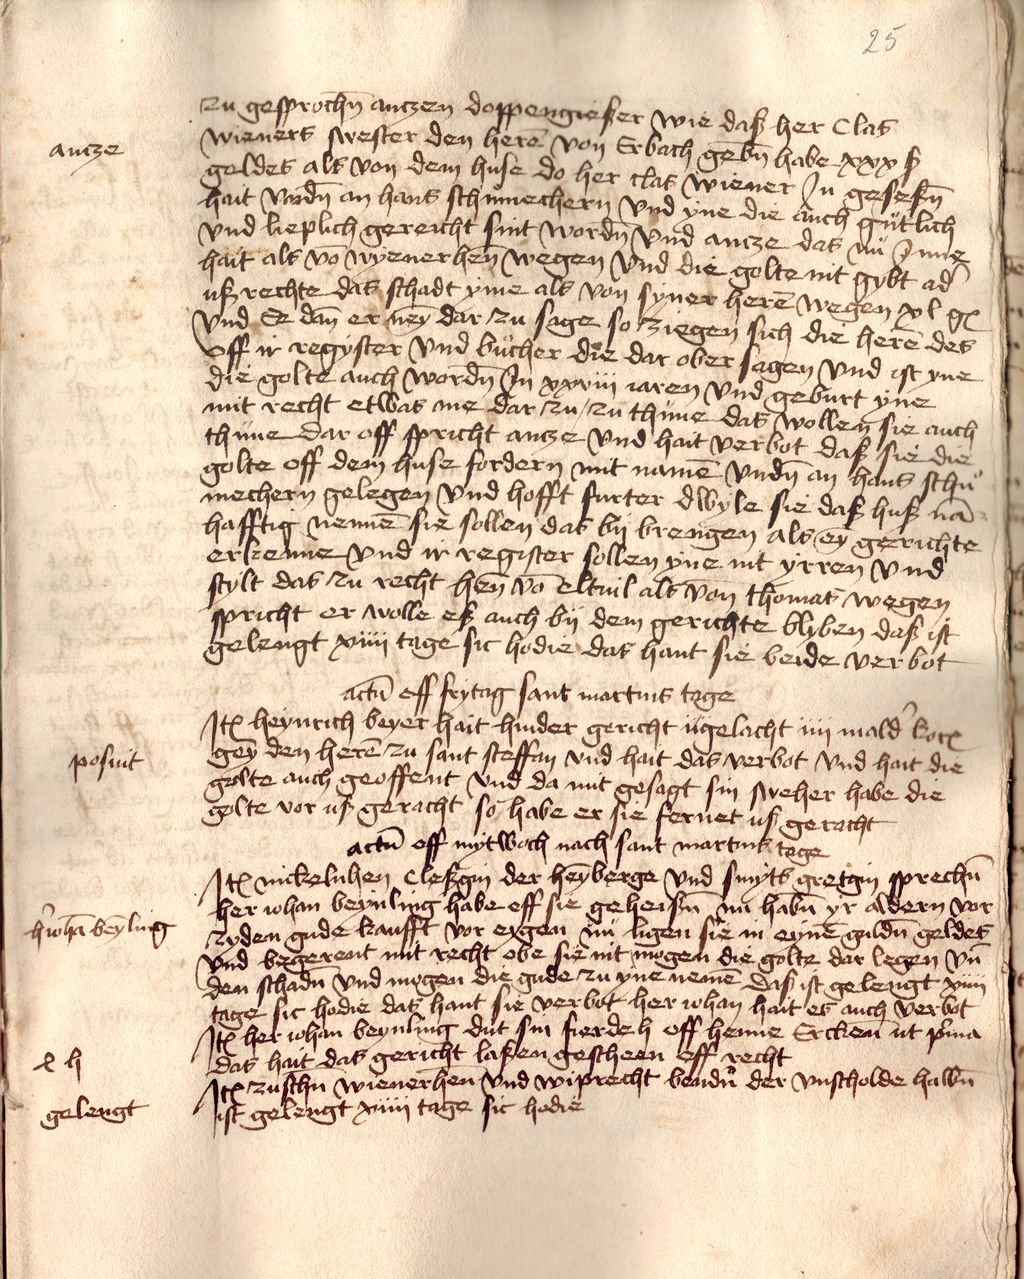 25
zu gesprochn̄ anczen doppengießer wie daß her Clas
ancze
wieners swester den herē von Erbach gebn̄ habe xxx ß
geldes als von dem huse do her clas wiener Jn geseßn̄
hait vndn̄ an hans schumechern vnd yne die auch gutlich
vnd lieplich gereicht sint wordn̄ vnd ancze das nū Jnne
hait als vō wyenerhen̄ wegen vnd die golte nit gybt ad'
uß rechte das schadt yme als von syner herē wegen xl gl
vnd Ee dan̄ er ney dar zu sage so ziegen sich die herē des
off ir regyster vnd bucher die dar ober sagen vnd ist yne
die golte auch wordn̄ Jn xxviii iaren vnd geburt yne
mit recht etwas me dar zu zu thune das wollen sie auch
thune dar off spricht ancze vnd hait verbot daß sie die
golte off dem huse fordern mit namē vndn̄ an hans schu
mechern gelegen vnd hofft furter dwyle sie daß huß nā
hafftig nennē sie sollen das bij brengen als eȳ gerichte
erkenne vnd ir register sollen yne nit yrren vnd
stylt das zu recht hen̄ vō eltuil als von thomas wegen
spricht er wolle eß auch bij dem gerichte bliben daß ist
gelengt xiiii tage sic hodie das hant sie beide verbot
actū off frytag sant martins tage
Itē heynrich beyer hait hinder gericht ūgelacht iiii mald' korē
posuit
gey den herē zu sant steffan vnd hait das verbot vnd hait die
golte auch geoffent vnd da mit gesagt sin sweher habe die
golte vor uß geracht so habe er sie fernet uß geracht
actū off mytwoch nach sant martins tage
Itē nickelnhen Cleßgin der heyberge vnd smyts gretgin sprechn̄
her iohan beynling habe off sie geheisn̄ nū habn̄ yr aldern vor
h' iohā beynling
zyden gude kaufft vor eygen nū ligen sie in eynē guldn̄ geldes
vnd begerent mit recht obe sie nit mogen die golte dar legen vn̄
den schadn̄ vnd mogen die gude zu yne nemē daß ist gelengt xiiii
tage sic hodie das hant sie verbot her iohan hait es auch verbot
Itē her iohan beynling dut sin fierde h off henne Ercken ut p'ma
x h
das hait das gericht laßen gescheen off recht
Itē zuschn̄ wienerhen̄ vnd wiprecht bendn̄ der vnscholde halbn̄
gelengt
ist gelengt xiiii tage sic hodie